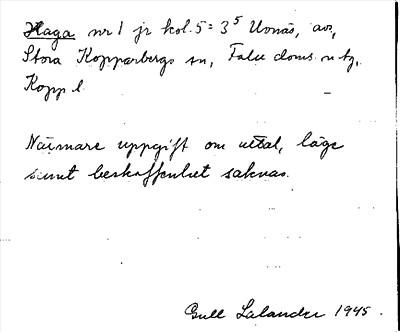 Haga nr 1 jr kol. 5: 3⁵ Uonäs, av,
Stora Kopparbergs sn, Falu doms. n tg,
Kopp l.
Närmare uppgift om uttal, läge
samt beskaffenhet saknas.
Gull Lalander 1945.